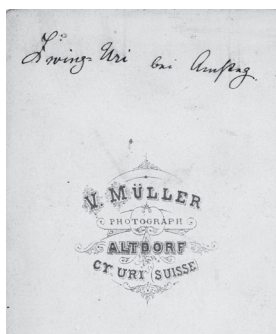 Zwing-Uri bei Amsteg
V. MÜLLER
PHOTOGRAPH
ALTDORF
CT URI (SUISSE)